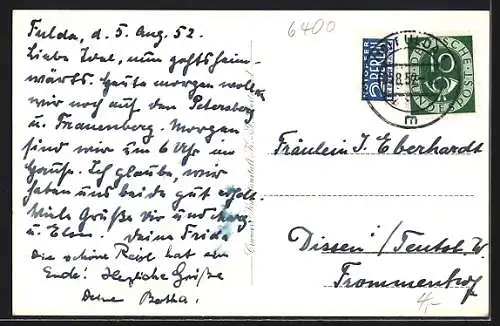 Fulda, d. 5. Aug. 52.
Liebe Isal, nun gehts heim-
wärts. Heute morgen wollen
wir noch auf den Petersberg
u. Frauenberg. Morgen
sind wir um 6 Uhr im
Hause. Ich glaube, wir
haben uns beide gut erholt.
Viele Grüße Dir und
u. Elsn. Deine Frida
Die schöne Reise hat ein
Ende! Herzliche Grüße
Deine Betha.
6400
NOTOPFER
2 BERLIN
STEUERMARKE
DEUTSCHE POST
10
BUNDESPOST
FULDA
8.52
Fräulein I. Eberhardt
Dissen / Teutob. W.
Frommenhof
4,-